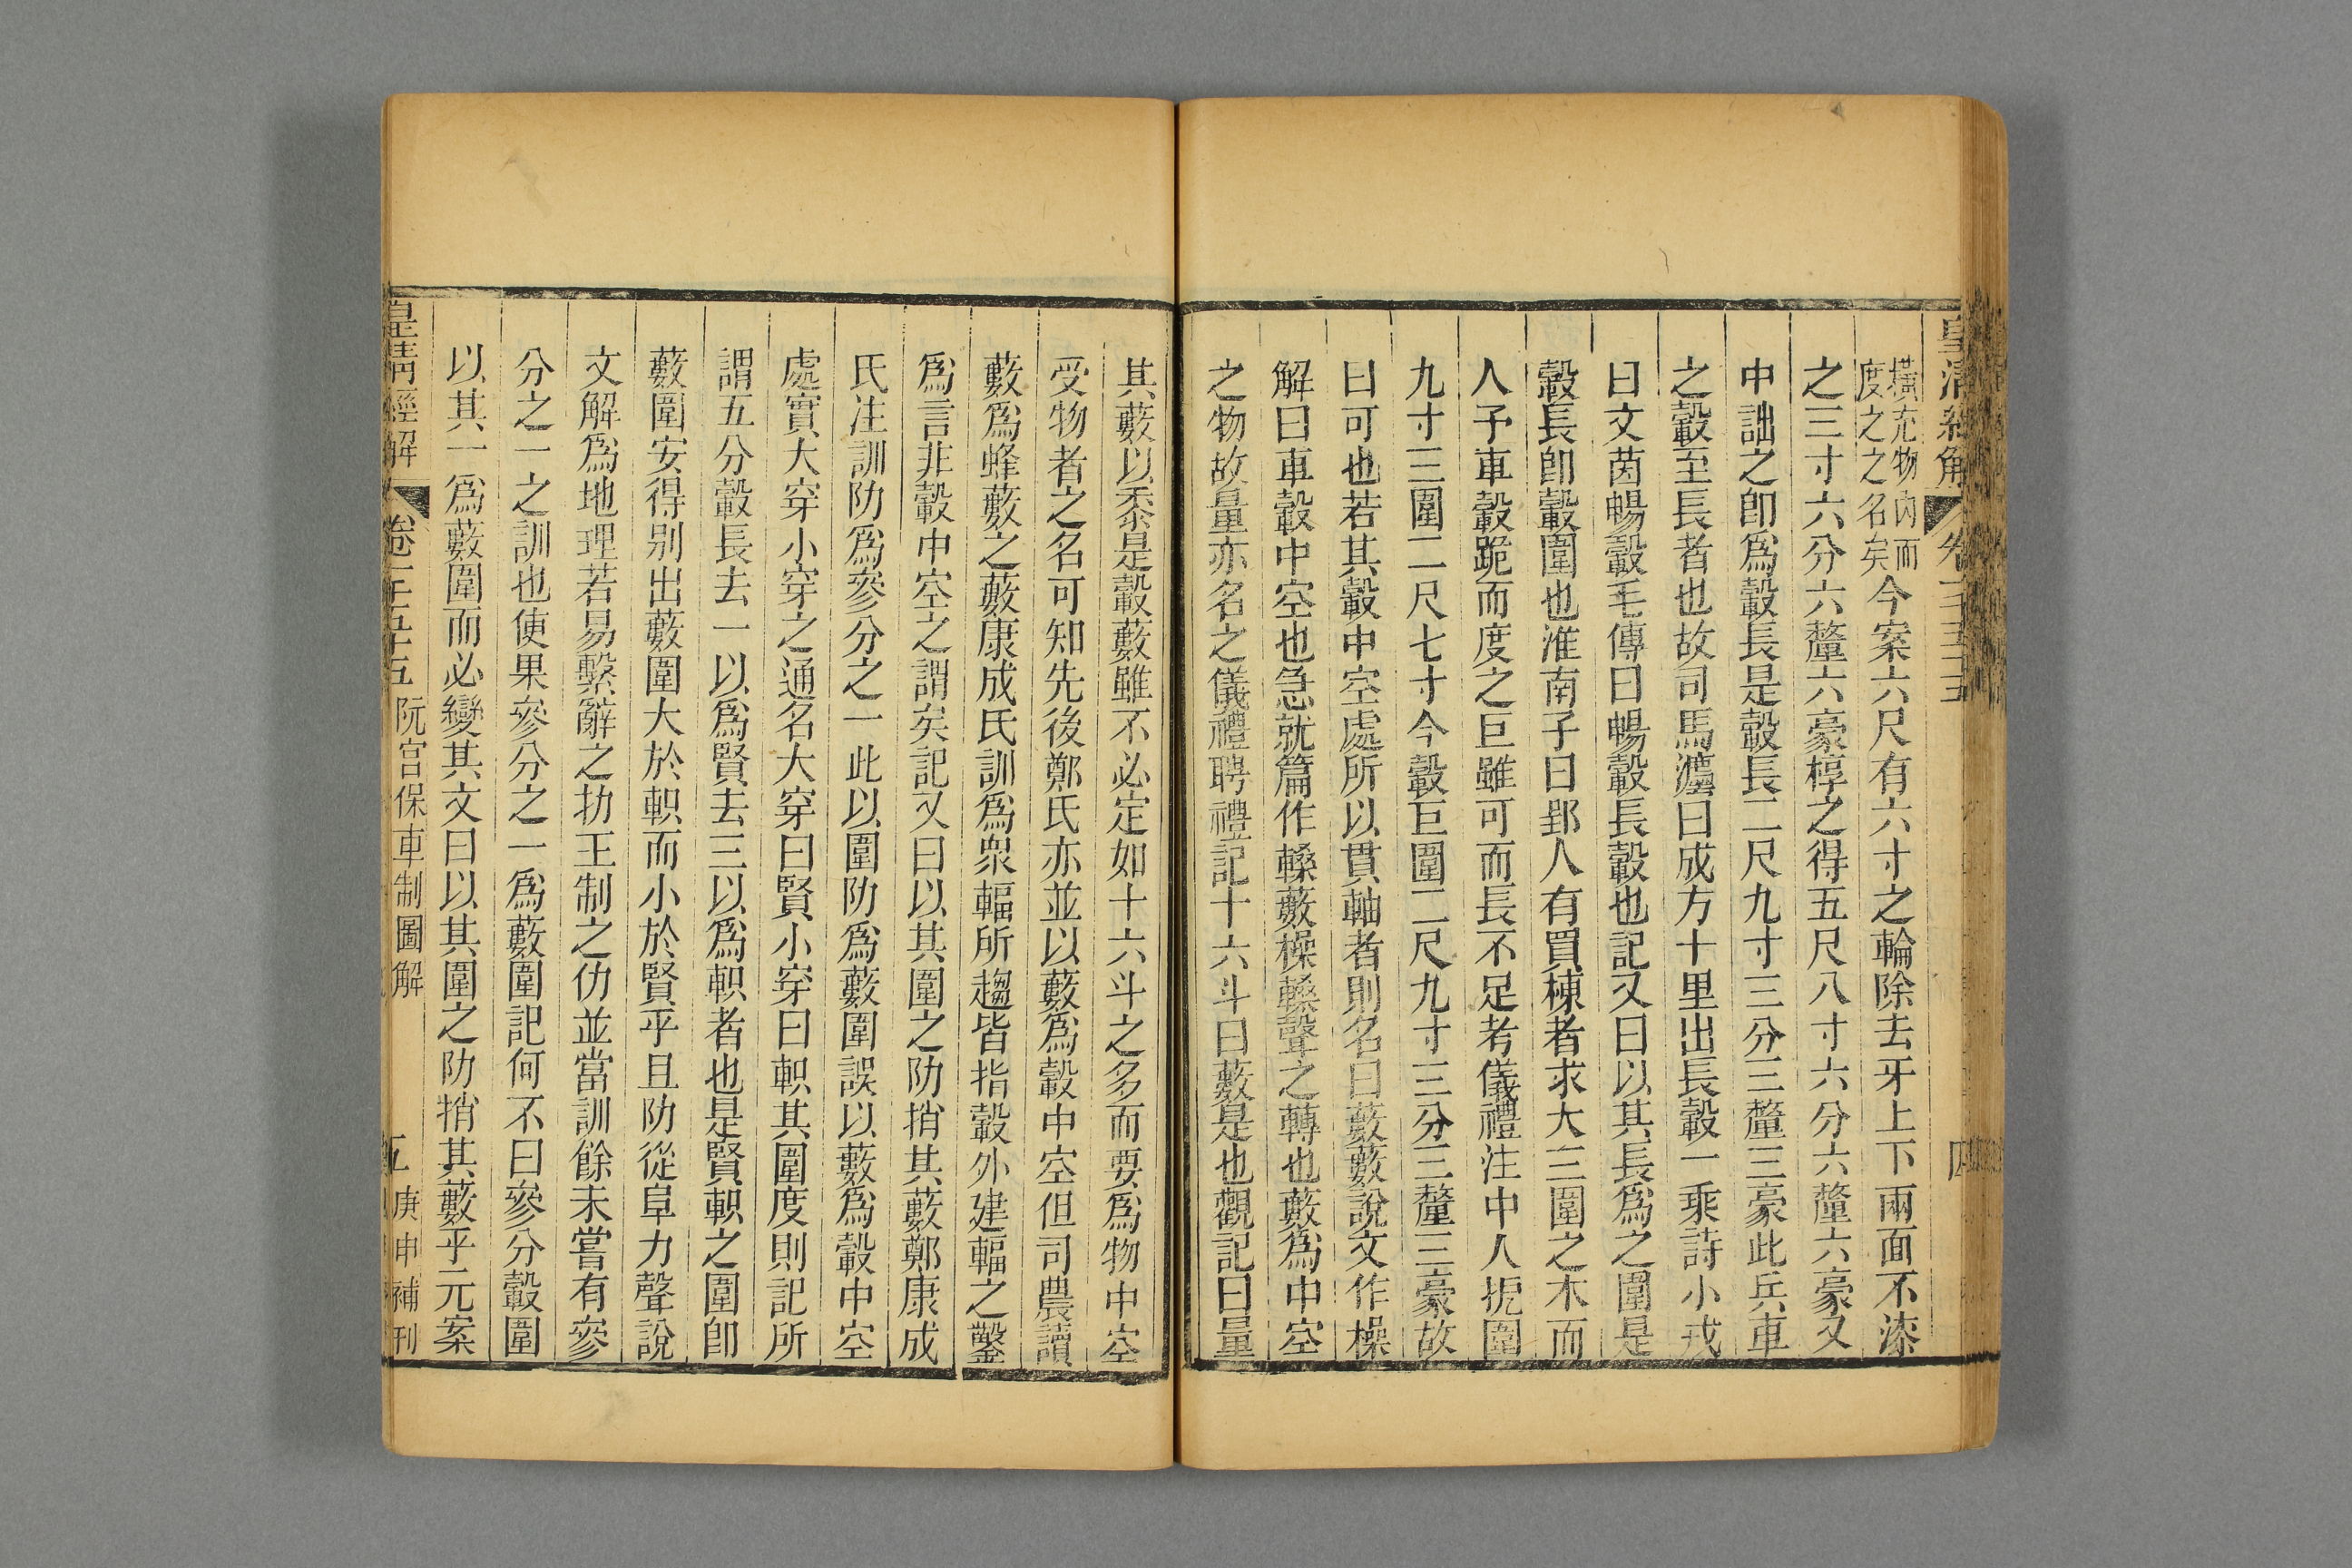 皇清經解
橫充物內而
度之之名矣
今案六尺有六寸之輪除去牙上下兩面不漆
之三寸六分六釐六豪椁之得五尺八寸六分六釐六豪又
中詘之卽爲轂長是轂長二尺九寸三分三釐三豪此兵車
之轂至長者也故司馬灋曰成方十里出長轂一乘詩小戎
曰文茵暢轂毛傳曰暢轂長轂也記又曰以其長爲之圍是
轂長卽轂圍也淮南子曰郢人有買棟者求大三圍之木而
人予車轂跪而度之巨雖可而長不足考儀禮注中人扼圍
九寸三圍二尺七寸今轂巨圍二尺九寸三分三釐三豪故
曰可也若其轂中空處所以貫軸者則名曰藪藪說文作橾
解曰車轂中空也急就篇作轑藪橾轑聲之轉也藪爲中空
之物故量亦名之儀禮聘禮記十六斗曰藪是也觀記曰量
其藪以黍是轂藪雖不必定如十六斗之多而要爲物中空
受物者之名可知先後鄭氏亦並以藪爲轂中空但司農讀
藪爲蜂藪之藪康成氏訓爲衆輻所趨皆指轂外建輻之鑿
爲言非轂中空之謂矣記又曰以其圍之阞捎其藪鄭康成
氏注訓阞爲參分之一此以圍阞爲藪圍誤以藪爲轂中空
處實大穿小穿之通名大穿曰賢小穿曰軹其圍度則記所
謂五分轂長去一以爲賢去三以爲軹者也是賢軹之圍卽
藪圍安得别出藪圍大於軹而小於賢乎且阞從阜力聲說
文解爲地理若易繫辭之扐王制之仂並當訓餘未嘗有參
分之一之訓也使果參分之一爲藪圍記何不曰參分轂圍
以其一爲藪圍而必變其文曰以其圍之阞捎其藪乎元案
皇清經解
卷一千五十五 阮宮保車制圖解
五 庚申補刊